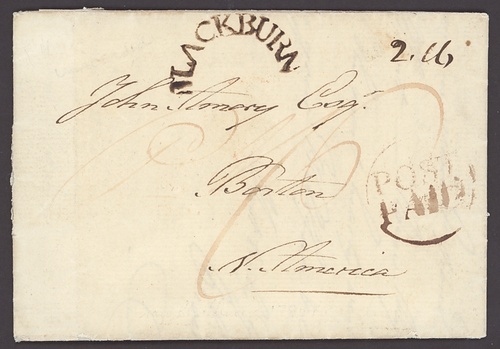 BLACKBURN
John Amory Esqr.
Boston
POST
PAID
N. America